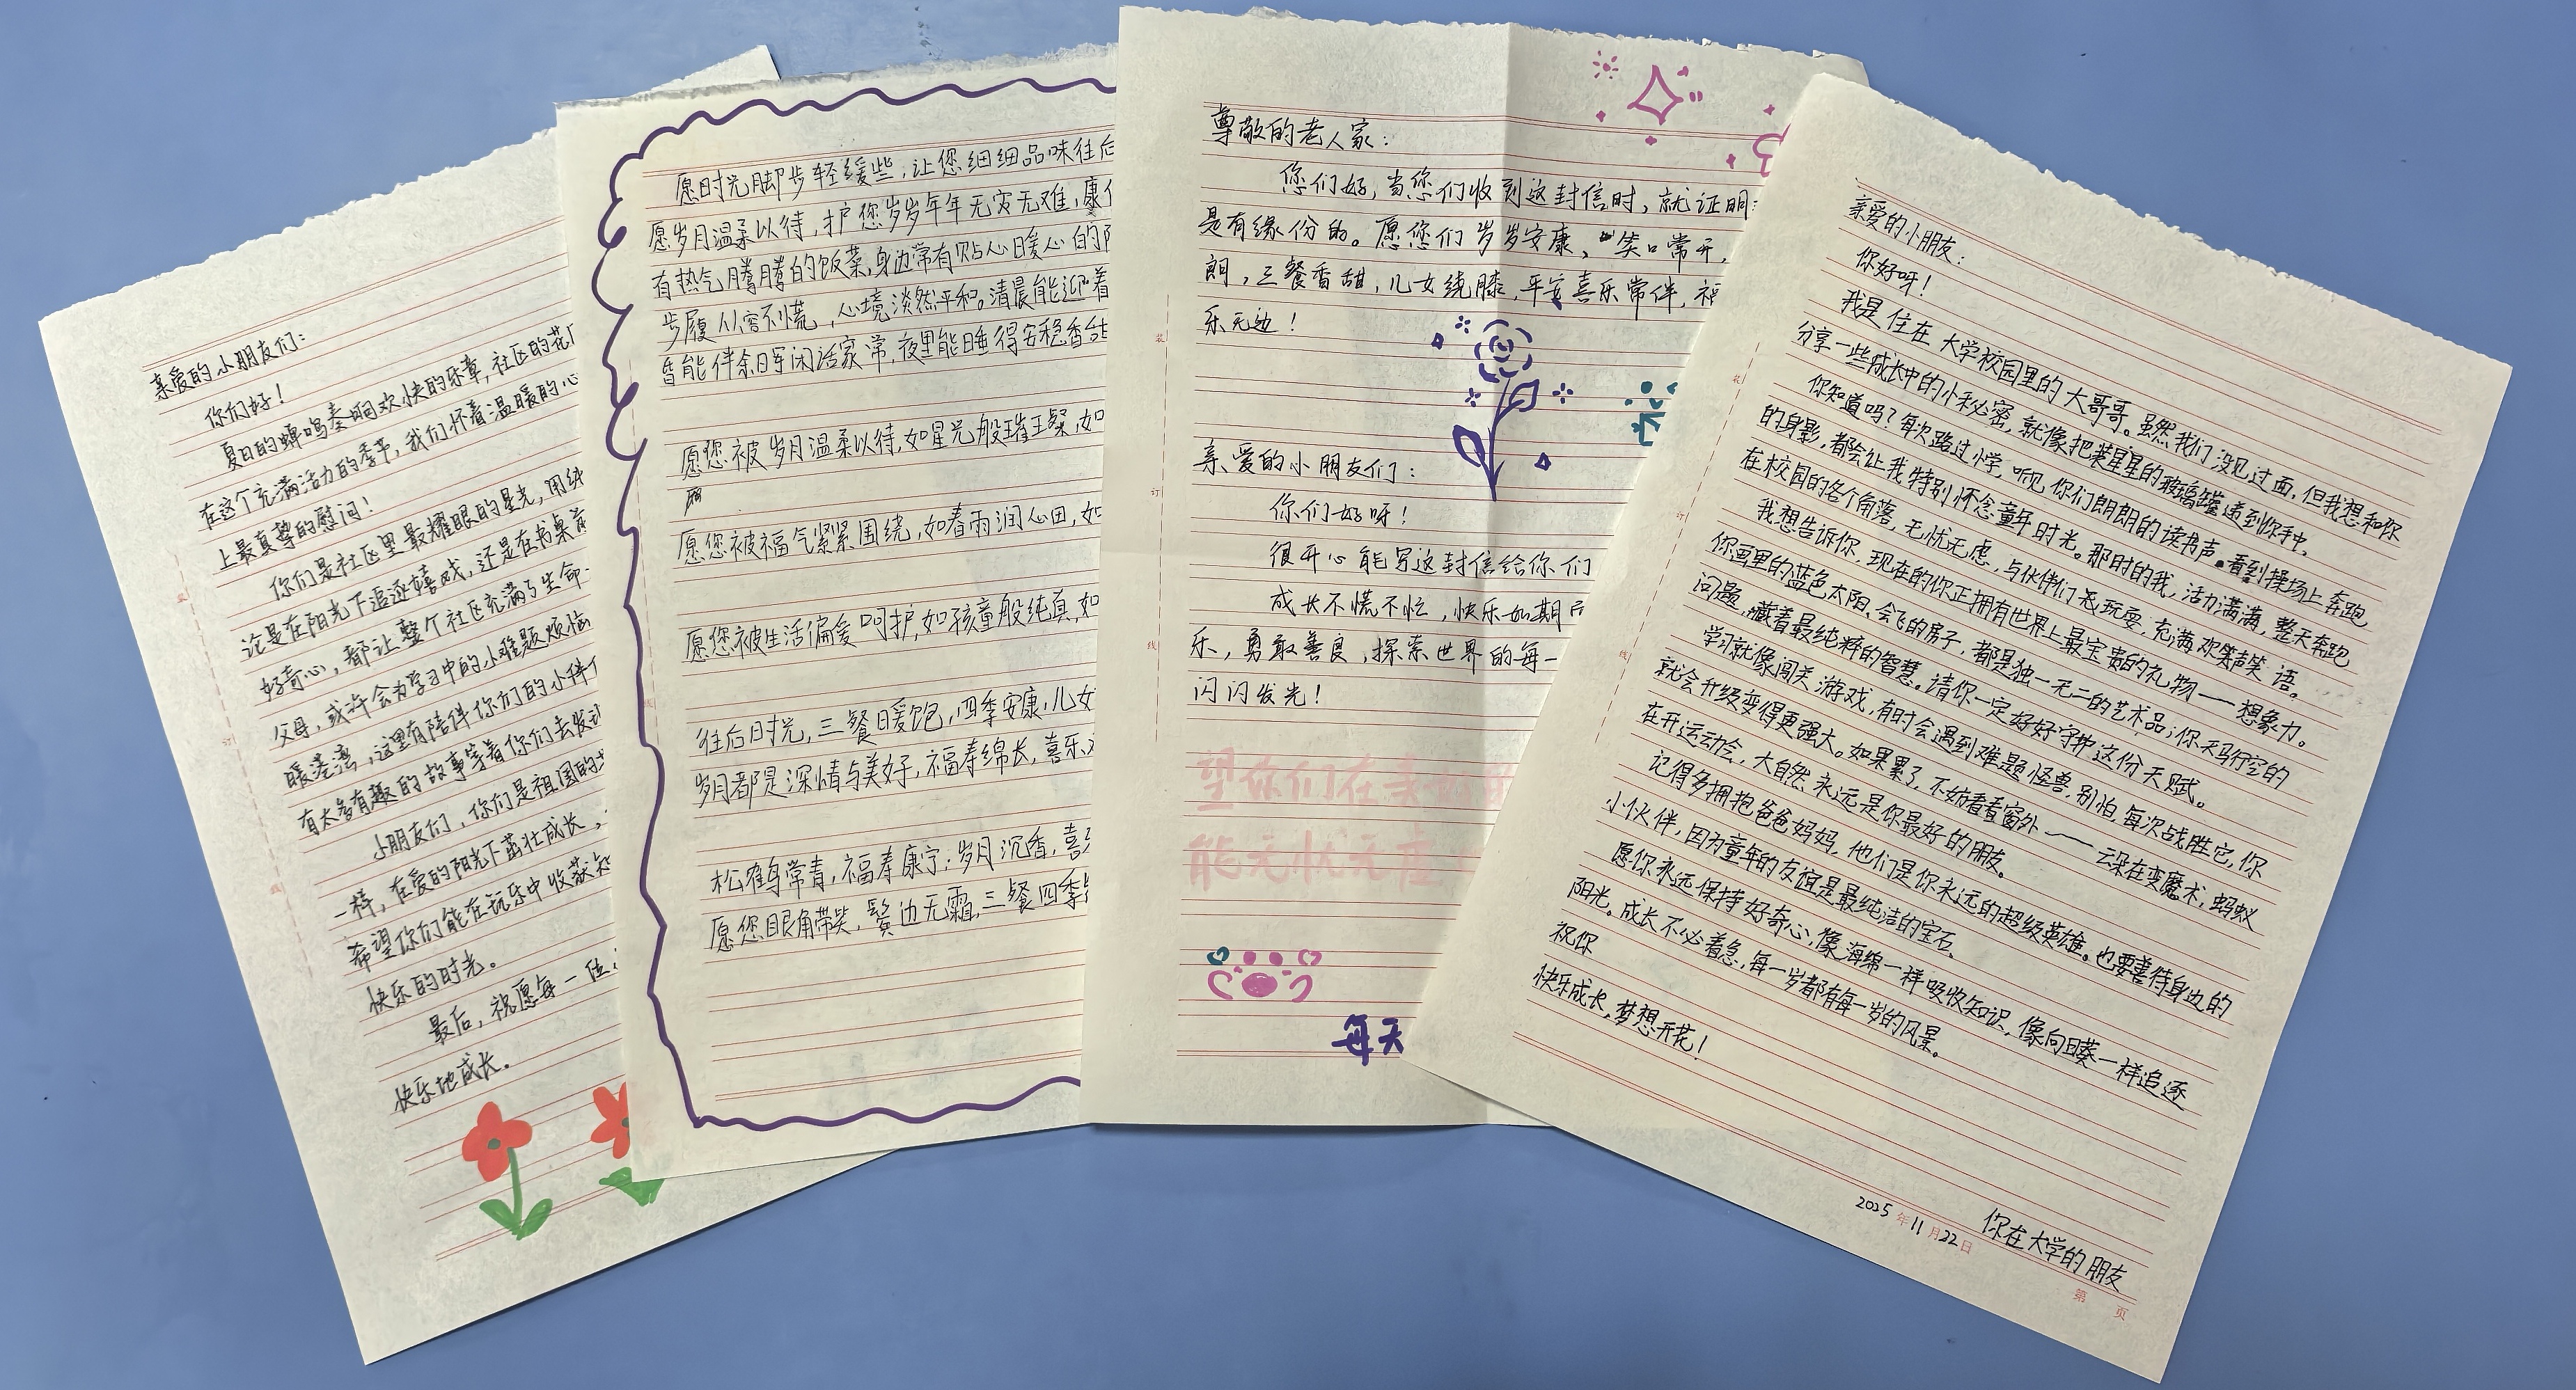 亲爱的小朋友们：
你们好！
夏日的蝉鸣奏响欢快的乐章，社区的花
在这个充满活力的季节，我们怀着温暖的心
上最真挚的慰问！
你们是社区里最耀眼的星光，用纯
论是在阳光下追逐嬉戏，还是在书桌前
好奇心，都让整个社区充满了生命
父母，或许会为学习中的小难题烦恼
暖港湾，这里有陪伴你们的小伴
有太多有趣的故事等着你们去发
小朋友们，你们是祖国的
一样，在爱的阳光下茁壮成长，
希望你们能在玩乐中收获知
快乐的时光。
最后，祝愿每一位
快乐地成长。
愿时光脚步轻缓些，让您细细品味往后
愿岁月温柔以待，护您岁岁年年无灾无难，康
有热气腾腾的饭菜，身边常有贴心暖心的陪
步履从容不慌，心境淡然平和。清晨能迎着
能伴余晖闲话家常，夜里能睡得安稳香甜
愿您被岁月温柔以待，如星光般璀璨，如
愿您被福气紧紧围绕，如春雨润心田，如
愿您被生活偏爱呵护，如孩童般纯真，如
往后日时光，三餐暖饱，四季安康，儿女
岁月都是深情与美好，福寿绵长，喜乐
松鹤常青，福寿康宁；岁月沉香，喜
愿您眼角带笑，鬓边无霜，三餐四季
尊敬的老人家：
您们好，当您们收到这封信时，就证明
是有缘份的。愿您们岁岁安康，笑口常开，
朗，三餐香甜，儿女绕膝，平安喜乐常伴，福
乐无边！
亲爱的小朋友们：
你们好呀！
很开心能写这封信给你们
成长不慌不忙，快乐如期
乐，勇敢善良，探索世界的每一
闪闪发光！
望你们在未来的
能无忧无虑
每天
亲爱的小朋友：
你好呀！
我是住在大学校园里的大哥哥。虽然我们没见过面，但我想和你
分享一些成长中的小秘密，就像把装星星的玻璃罐递到你手中。
你知道吗？每次路过小学，听见你们朗朗的读书声，看到操场上奔跑
的身影，都会让我特别怀念童年时光。那时的我，活力满满，整天奔跑
在校园的各个角落，无忧无虑，与伙伴们一起玩耍，充满欢声笑语。
我想告诉你，现在的你正拥有世界上最宝贵的礼物——想象力。
你画里的蓝色太阳、会飞的房子，都是独一无二的艺术品；你天马行空的
问题，藏着最纯粹的智慧。请你一定好好守护这份天赋。
学习就像闯关游戏，有时会遇到难题怪兽，别怕，每次战胜它，你
就会升级变得更强大。如果累了，不妨看看窗外——云朵在变魔术，蚂蚁
在开运动会，大自然永远是你最好的朋友。
记得多拥抱爸爸妈妈，他们是你永远的超级英雄。也要善待身边的
小伙伴，因为童年的友谊是最纯洁的宝石。
愿你永远保持好奇心，像海绵一样吸收知识，像向日葵一样追逐
阳光。成长不必着急，每一岁都有每一岁的风景。
祝你
快乐成长，梦想开花！
你在大学的朋友
2025年11月22日
第 页
装
订
线